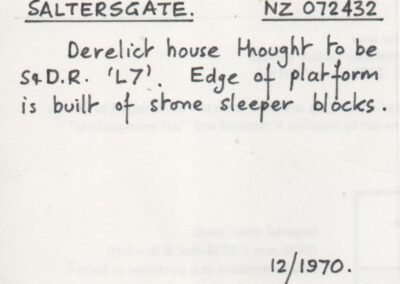 SALTERSGATE. NZ 072432
Derelict house thought to be
S&D.R. 'L7'. Edge of platform
is built of stone sleeper blocks.
12/1970.